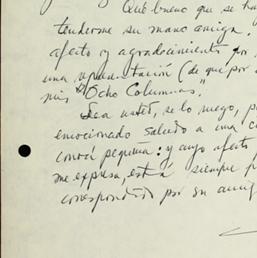 Qué bueno que se ha
tenderme su mano amiga.
afecto y agradecimiento por
una representación (de que por
mis "Ocho Columnas".
Sea usted, se lo ruego, p
emocionado saludo a una c
conocí pequeña: y cuyo afecto
me expresa, está siempre p
correspondido por su amig